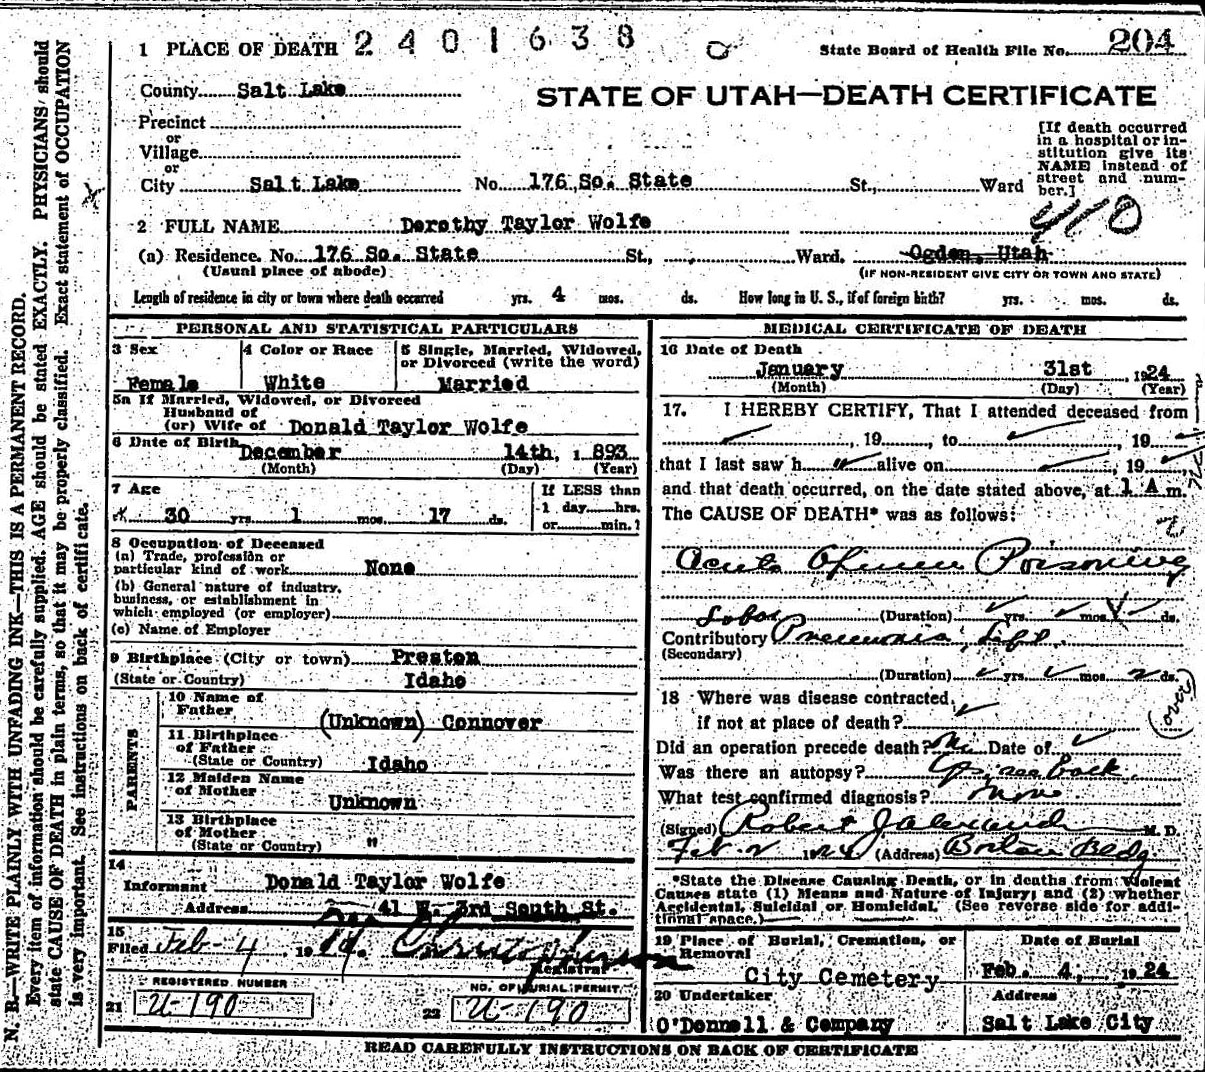 1 PLACE OF DEATH 2 4 0 1 6 3 8
State Board of Health File No. 204
County Salt Lake
STATE OF UTAH—DEATH CERTIFICATE
Precinct
or
Village
or
City Salt Lake No. 176 So. State St., Ward
[If death occurred
in a hospital or in-
stitution give its
NAME instead of
street and num-
ber.]
410
2 FULL NAME Dorothy Taylor Wolfe
(a) Residence. No. 176 So. State St., Ward. Ogden, Utah
(Usual place of abode) (IF NON-RESIDENT GIVE CITY OR TOWN AND STATE)
Length of residence in city or town where death occurred yrs. 4 mos. ds. How long in U. S., if of foreign birth? yrs. mos. ds.
PERSONAL AND STATISTICAL PARTICULARS
3 Sex
Female
4 Color or Race
White
5 Single, Married, Widowed,
or Divorced (write the word)
Married
5a If Married, Widowed, or Divorced
Husband of
(or) Wife of Donald Taylor Wolfe
6 Date of Birth December 14th, 1893
(Month) (Day) (Year)
7 Age
30 yrs 1 mos. 17 ds.
If LESS than
1 day hrs.
or min.?
8 Occupation of Deceased
(a) Trade, profession or
particular kind of work None
(b) General nature of industry,
business, or establishment in
which employed (or employer)
(c) Name of Employer
9 Birthplace (City or town) Preston
(State or Country) Idaho
PARENTS
10 Name of
Father (Unknown) Connover
11 Birthplace
of Father
(State or Country) Idaho
12 Maiden Name
of Mother Unknown
13 Birthplace
of Mother
(State or Country) "
14
Informant Donald Taylor Wolfe
Address 41 W. 3rd South St.
15
Filed Feb-4, 19
Registrar
REGISTERED NUMBER
21 U-190
NO. OF BURIAL PERMIT
22 U-190
MEDICAL CERTIFICATE OF DEATH
16 Date of Death
January 31st, 1924
(Month) (Day) (Year)
17. I HEREBY CERTIFY, That I attended deceased from
, 19 , to , 19
that I last saw h alive on , 19
and that death occurred, on the date stated above, at 1 A m.
The CAUSE OF DEATH* was as follows:
Acute Opium Poisoning
(Duration) yrs mos ds.
Lobar
Contributory Pneumonia, Left.
(Secondary)
(Duration) yrs mos 2 ds.
(over)
18 Where was disease contracted,
if not at place of death?
Did an operation precede death? No Date of
Was there an autopsy?
What test confirmed diagnosis?
(Signed) Robert J Alexander M. D.
Feb 2 1924 (Address) Boston Bldg.
*State the Disease Causing Death, or in deaths from Violent
Causes state (1) Means and Nature of Injury; and (2) whether
Accidental, Suicidal or Homicidal. (See reverse side for addi-
tional space.)
19 Place of Burial, Cremation, or
Removal
City Cemetery
Date of Burial
Feb. 4, 1924
20 Undertaker
O'Donnell & Company
Address
Salt Lake City
READ CAREFULLY INSTRUCTIONS ON BACK OF CERTIFICATE
N. B.—WRITE PLAINLY WITH UNFADING INK—THIS IS A PERMANENT RECORD.
Every item of information should be carefully supplied. AGE should be stated EXACTLY. PHYSICIANS should
state CAUSE OF DEATH in plain terms, so that it may be properly classified. Exact statement of OCCUPATION
is very important. See instructions on back of certificate.